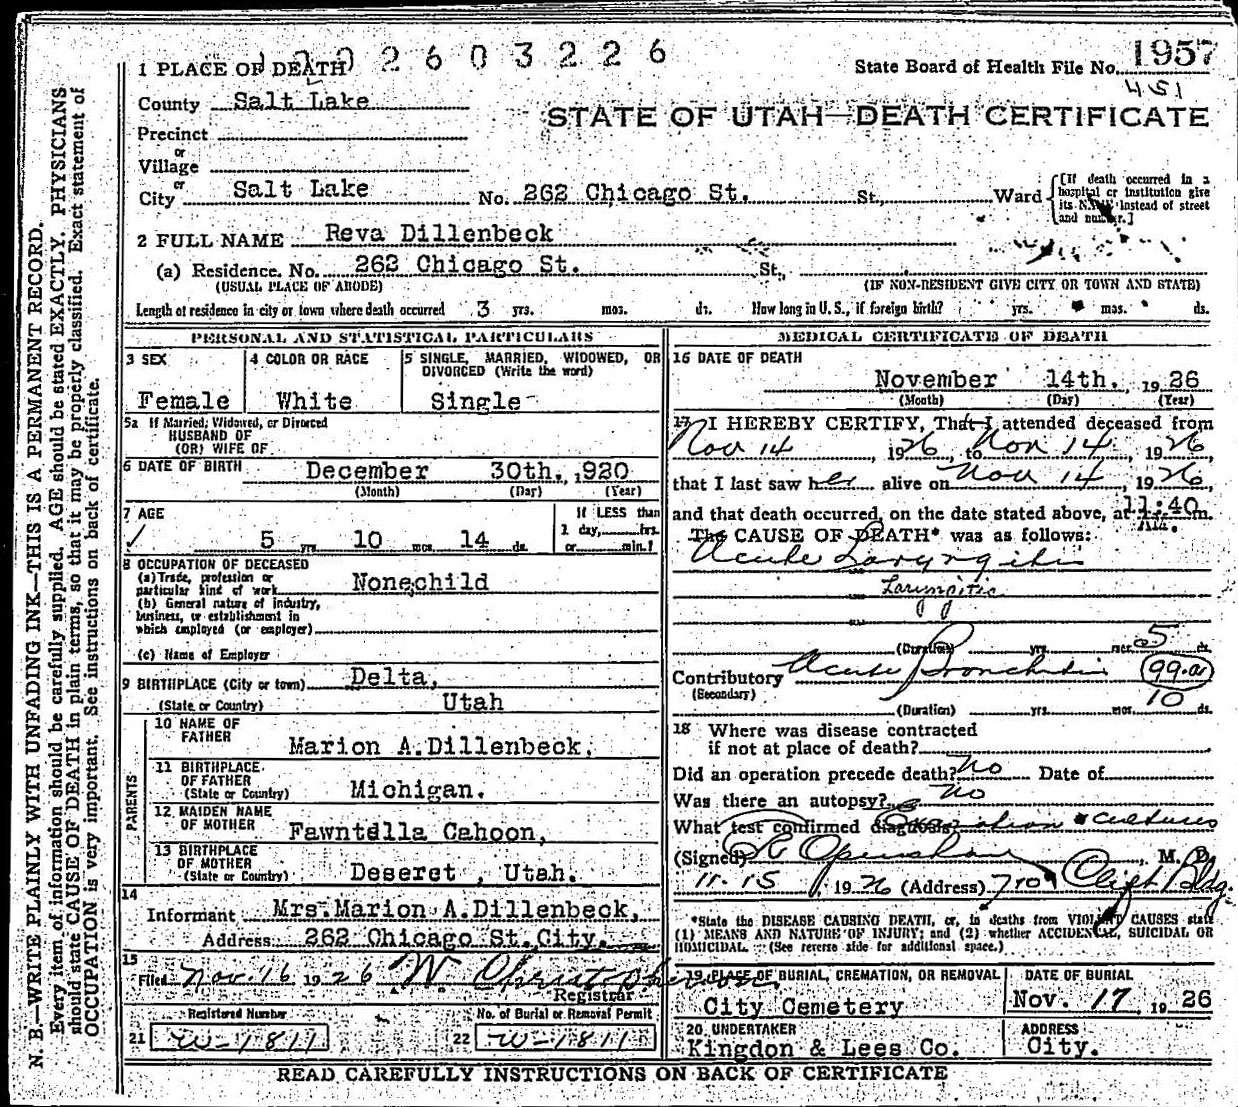 N. B.—WRITE PLAINLY WITH UNFADING INK—THIS IS A PERMANENT RECORD.
Every item of information should be carefully supplied. AGE should be stated EXACTLY. PHYSICIANS
should state CAUSE OF DEATH in plain terms, so that it may be properly classified. Exact statement of
OCCUPATION is very important. See instructions on back of certificate.
2 6 0 3 2 2 6
1 PLACE OF DEATH
State Board of Health File No. 1957
451
County Salt Lake
STATE OF UTAH—DEATH CERTIFICATE
Precinct
or
Village
or
City Salt Lake No. 262 Chicago St. St., Ward
[If death occurred in a
hospital or institution give
its NAME instead of street
and number.]
2 FULL NAME Reva Dillenbeck
(a) Residence. No. 262 Chicago St. St.,
(USUAL PLACE OF ABODE) (IF NON-RESIDENT GIVE CITY OR TOWN AND STATE)
Length of residence in city or town where death occurred 3 yrs. mos. ds. How long in U. S., if foreign birth? yrs. mos. ds.
PERSONAL AND STATISTICAL PARTICULARS
3 SEX
Female
4 COLOR OR RACE
White
5 SINGLE, MARRIED, WIDOWED, OR
DIVORCED (Write the word)
Single
5a If Married, Widowed, or Divorced
HUSBAND OF
(OR) WIFE OF
6 DATE OF BIRTH December 30th, 1920
(Month) (Day) (Year)
7 AGE
5 yrs. 10 mos. 14 ds.
If LESS than
1 day, hrs.
or min.?
8 OCCUPATION OF DECEASED
(a) Trade, profession or
particular kind of work None;child
(b) General nature of industry,
business, or establishment in
which employed (or employer)
(c) Name of Employer
9 BIRTHPLACE (City or town) Delta,
(State or Country) Utah
PARENTS
10 NAME OF
FATHER
Marion A.Dillenbeck.
11 BIRTHPLACE
OF FATHER
(State or Country) Michigan.
12 MAIDEN NAME
OF MOTHER
Fawntella Cahoon,
13 BIRTHPLACE
OF MOTHER
(State or Country) Deseret , Utah.
14
Informant Mrs.Marion A.Dillenbeck,
Address: 262 Chicago St.City.
15
Filed Nov. 16 1926 W. Christopherson
Registrar
Registered Number
21 W-1811
No. of Burial or Removal Permit
22 W-1811
MEDICAL CERTIFICATE OF DEATH
16 DATE OF DEATH
November 14th. , 1926
(Month) (Day) (Year)
17 I HEREBY CERTIFY, That I attended deceased from
Nov 14 , 1926, to Nov 14 , 1926
that I last saw her alive on Nov 14 , 1926,
and that death occurred, on the date stated above, at 11:40 m.
AM.
The CAUSE OF DEATH* was as follows:
Acute Laryngitis
Laryngitis
(Duration) yrs. mos. 5 ds.
Contributory Acute Bronchitis 99-a
(Secondary)
(Duration) yrs. mos. 10 ds.
18 Where was disease contracted
if not at place of death?
Did an operation precede death? No Date of
Was there an autopsy? No
What test confirmed diagnosis? Examination & cultures
(Signed) Openshaw , M. D.
11-15 , 1926 (Address) 710 Clift Bldg.
*State the DISEASE CAUSING DEATH, or, in deaths from VIOLENT CAUSES state
(1) MEANS AND NATURE OF INJURY; and (2) whether ACCIDENTAL, SUICIDAL OR
HOMICIDAL. (See reverse side for additional space.)
19 PLACE OF BURIAL, CREMATION, OR REMOVAL
City Cemetery
DATE OF BURIAL
Nov. 17 , 1926
20 UNDERTAKER
Kingdon & Lees Co.
ADDRESS
City.
READ CAREFULLY INSTRUCTIONS ON BACK OF CERTIFICATE